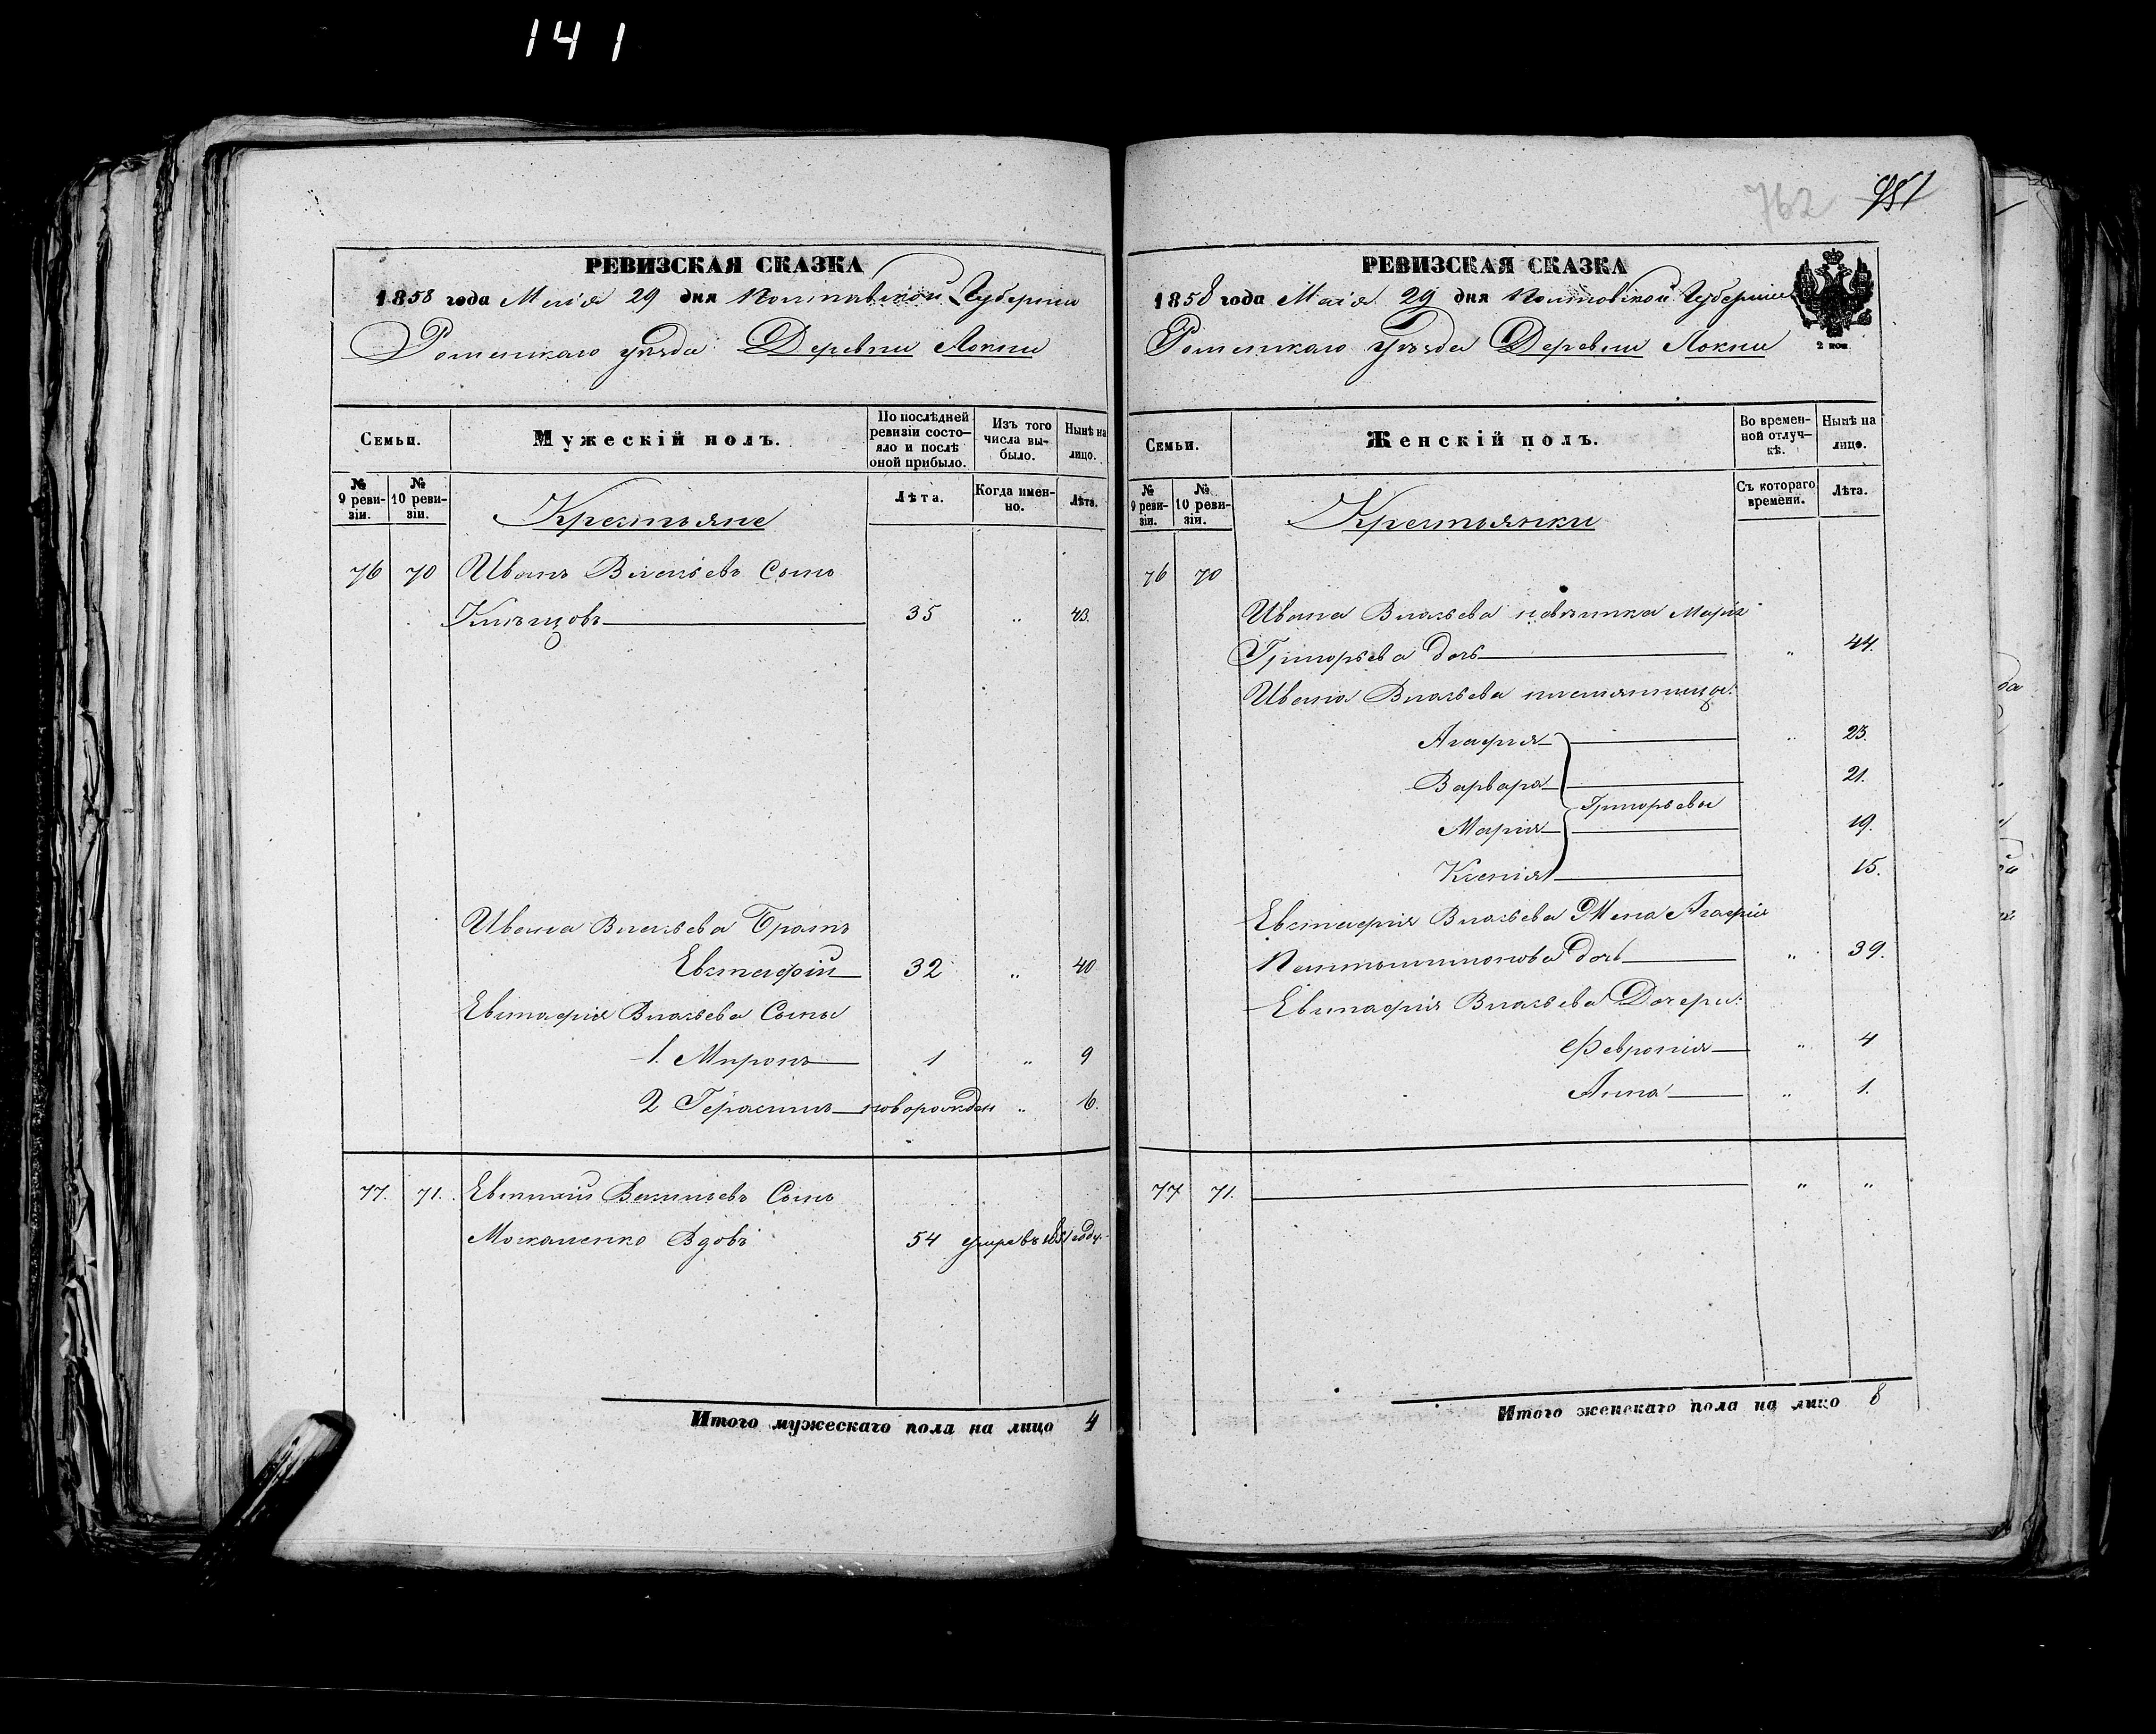 141
РЕВИЗСКАЯ СКАЗКА
1858 года Маія 29 дня Полтавской Губерніи
Роменскаго уѣзда Деревни Локни
Семьи.
Мужескій полъ.
По послѣдней ревизіи состо-
яло и послѣ
оной прибыло.
Изъ того
числа вы-
было.
Нынѣ на
лицо.
№
9 реви-
зіи.
№
10 реви-
зіи.
Крестьяне
Лѣта.
Когда имен-
но.
Лѣта.
76 70 Иванъ Власьевъ Сынъ
Клѣщовъ 35 „ 43.
Ивана Власьева Братъ
Евстафій 32 „ 40
Евстафія Власьева Сыны
1. Миронъ 1 „ 9
2 Герасимъ новорожден „ 6.
77. 71. Евтихій Васильевъ Сынъ
Москаленко Вдовъ 54 умре въ 1851 году.
Итого мужескаго пола на лицо 4
762 951
РЕВИЗСКАЯ СКАЗКА
1858 года Маія 29 дня Полтовской Губерніи
Роменскаго Уѣзда Деревни Локни
2 коп
Семьи.
Женскій полъ.
Во времен-
ной отлуч-
кѣ.
Нынѣ на
лицо.
№
9 реви-
зіи.
№
10 реви-
зіи.
Крестьянки
Съ котораго
времени.
Лѣта.
76 70
Ивана Власьева невѣстка Марія
Григорьева дочь „ 44.
Ивана Власьева племянницы:
Агафія „ 23.
Варвара 21.
Григорьевы
Марія 19.
Ксенія 15.
Евстафія Власьева Жена Агафія
Пантелимонова дочь „ 39.
Евстафія Власьева Дочери:
Февронія „ 4
Анна „ 1.
77 71. „ „
Итого женскаго пола на лицо 8